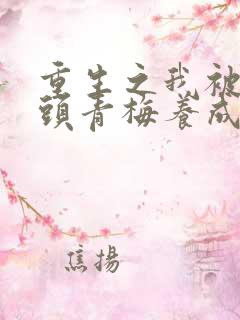 重生之我被
頭青梅養成
焦揚